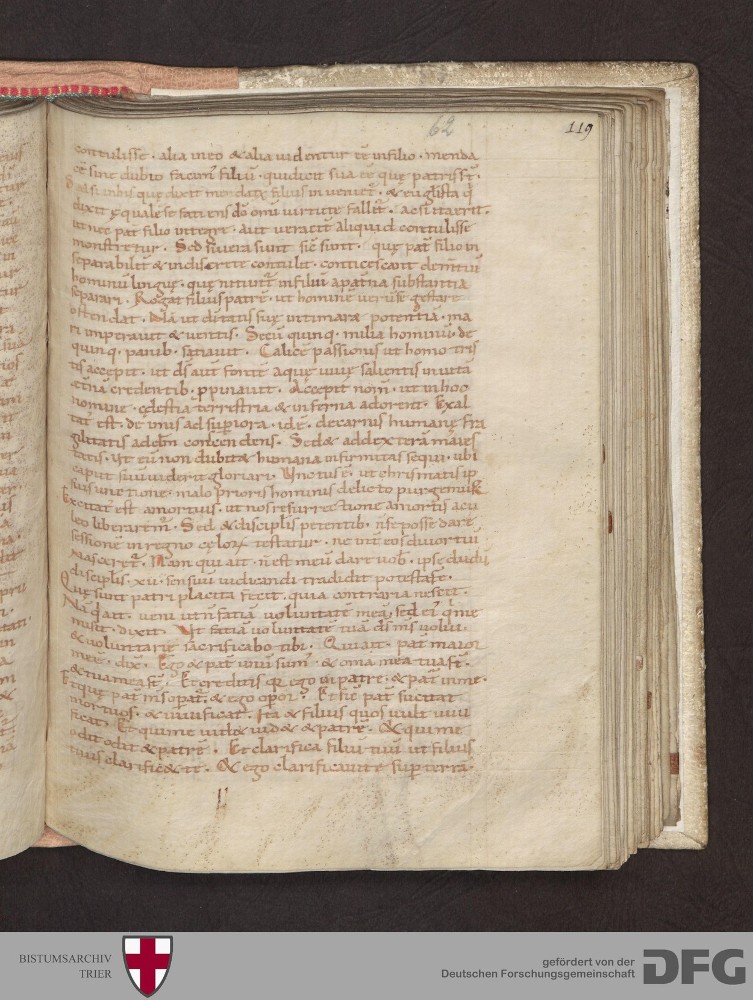 62
119
contulisse · alia uero & alia uidentur ee in filio · menda
ce sine dubio facim filiu · qui dixit sua ee que patris st
Sed si in his que dixit mendax filius inuenit · & euglista q
dixit equale se faciens do omi uirtute fallet · Ac si itaerit ·
ut nec pat filio integre · aut ueracit aliquid contulisse
monstretur · Sed si uera sunt sic sunt · que pat filio in
separabilit & indiscrete contulit · conticescant
hominu lingue · que in filiu a patria substantia
separari · Regat filius patre · ut homine uerus se gestare
ostendat · Na ut diuinitatis sue intimaret potentia · ma
ri imperauit & uentis · Secu quinq · milia hominu · de
quinq · panib · satiauit · Calice passionis ut homo tris
tis accepit · ut ds aut fonte aque uiue salientis in uita
etna credentib · ppinauit · Accepit nom · ut in hoc
nomine · celestia terrestria & inferna adorent · Exal
tat est · de imis ad supiora · id e · de carnis humane fra
gilitatis ad celm conscendens · Sed & ad dextera maies
tatis · ist eu non dubitet humana infirmitas sequi · ubi
caput suu uiderit gloriari · Unctus e · ut chrismatis ip
sius unctione · malo prioris hominis delicto purgemur
Excitat est a mortuis · ut nos resurrectione a mortis acu
leo liberarem · Sed & disciplis petentib · n se posse dare
sessione in regno celor testatur · ne int eos diuortiu
nasceret · Nam qui ait · n est meu dare uob · ipse
disciplis · xii · sensum iudicandi tradidit potestate ·
Que sunt patri placita fecit · quia contraria nesciit ·
Na q ait · ueni ut n facia uoluntate mea, sed ei q me
misit · dixit · Ut facia uoluntate tua ds ms uolui ·
& uoluntarie sacrificabo tibi · Qui ait · pat maior
me e · dix · Ego & pat unu sum · & oma mea tua st ·
& tua mea st · Et creditis q ego in patre · & pat in me ·
Et que pat ms opat · & ego opor · Et sic pat suscitat
mortuos · & uiuificat · Ita & filius quos uult uiui
ficat · Et qui me uidet uidet & patre · Et qui me
odit odit & patre · Et clarifica filiu tuu ut filius
tuus clarificet te · Et ego clarificaui te sup terra ·
BISTUMSARCHIV
TRIER
gefördert von der
Deutschen Forschungsgemeinschaft
DFG